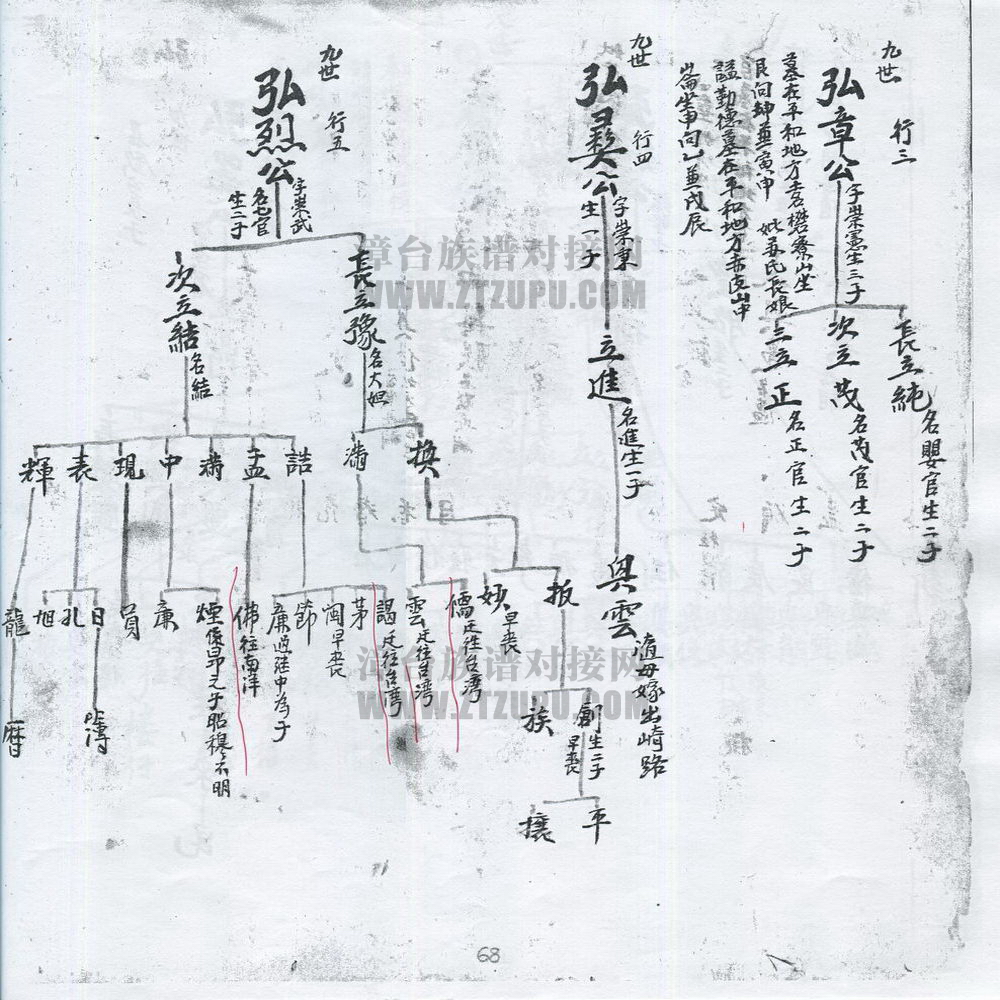 九世
行三
弘章公
字崇憲生三子
墓在平和地方 樊寮山坐
艮向坤兼寅申
妣苏氏長娘
謚勤德墓在平和地方赤 山中
崙坐申向 兼戌辰
長立純
名嬰官生二子
次立茂
名茂官生二子
三立正
名正官生二子
九世
行四
弘彝公
字崇秉
生一子
立進
名進生一子
興雲
随母嫁出崎路
九世
行五
弘烈公
字崇武
名 官
生二子
長立豫
名大妲
次立結
名結
換
满
詰
孟
满
中
現
表
輝
扳
妙
早丧
儒
迁往台湾
雲
迁往台湾
謁
迁往台湾
茅
闽
早丧
節
廉
過继中為子
佛
往南洋
煙
係昂之子昭穆不明
廉
員
日
孔
旭
龍
創
生二子
早丧
族
簿
曆
平
攘
漳台族谱对接网
WWW.ZTZUPU.COM
漳台族谱对接网
WWW.ZTZUPU.COM
68